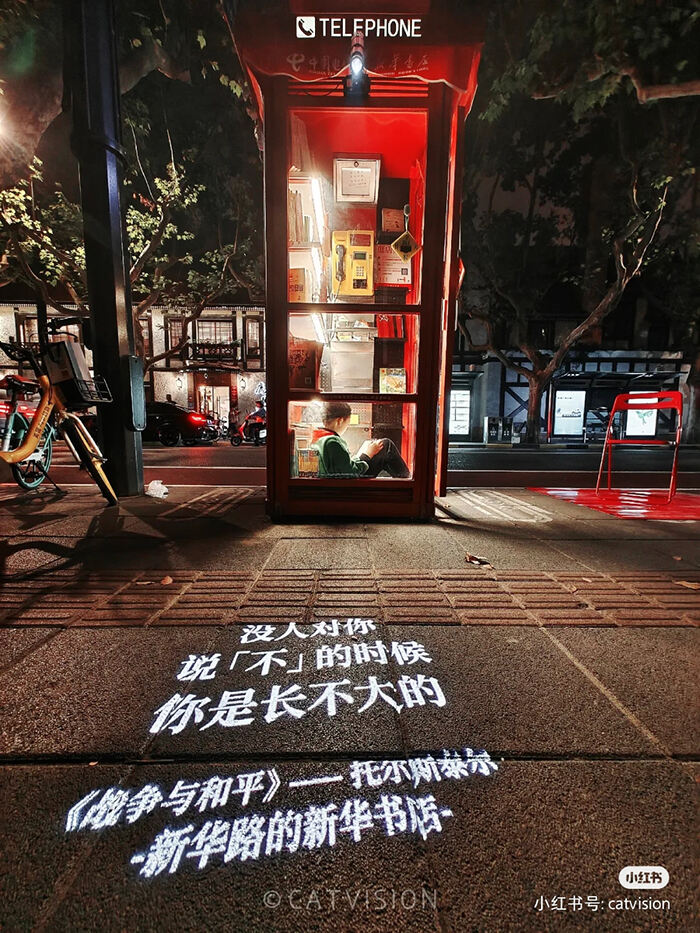 TELEPHONE
没人对你
说「不」的时候
你是长不大的
《战争与和平》— 托尔斯泰尔
-新华路的新华书店-
©CATVISION
小红书
小红书号: catvision